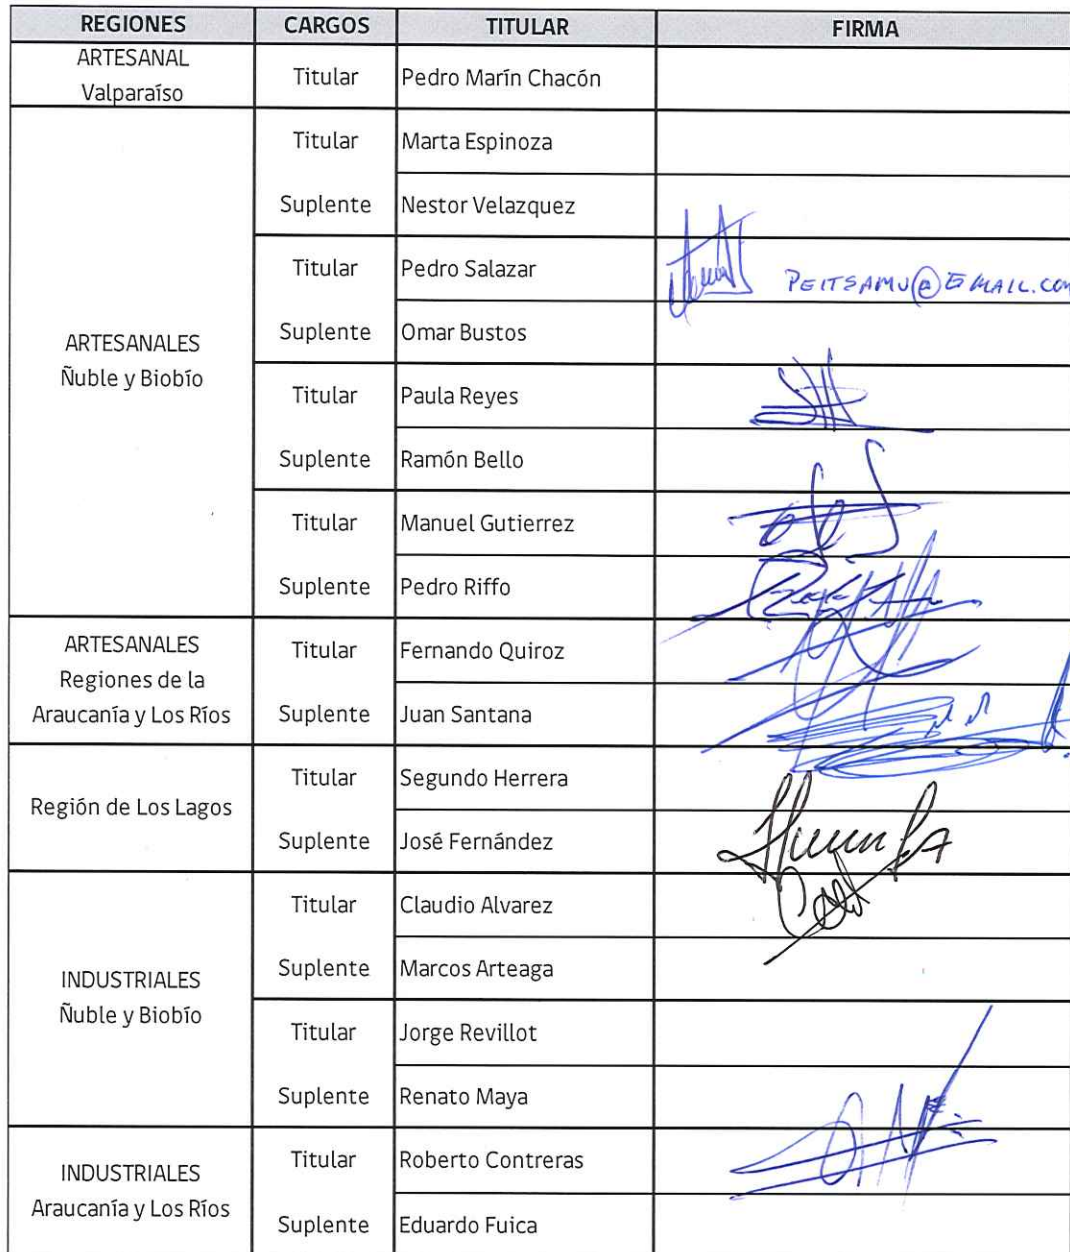 REGIONES CARGOS TITULAR FIRMA
ARTESANAL
Valparaíso
Titular Pedro Marín Chacón
ARTESANALES
Ñuble y Biobío
Titular Marta Espinoza
Suplente Nestor Velazquez
Titular Pedro Salazar
Suplente Omar Bustos
Titular Paula Reyes
Suplente Ramón Bello
Titular Manuel Gutierrez
Suplente Pedro Riffo
ARTESANALES
Regiones de la
Araucanía y Los Ríos
Titular Fernando Quiroz
Suplente Juan Santana
Región de Los Lagos
Titular Segundo Herrera
Suplente José Fernández
INDUSTRIALES
Ñuble y Biobío
Titular Claudio Alvarez
Suplente Marcos Arteaga
Titular Jorge Revillot
Suplente Renato Maya
INDUSTRIALES
Araucanía y Los Ríos
Titular Roberto Contreras
Suplente Eduardo Fuica